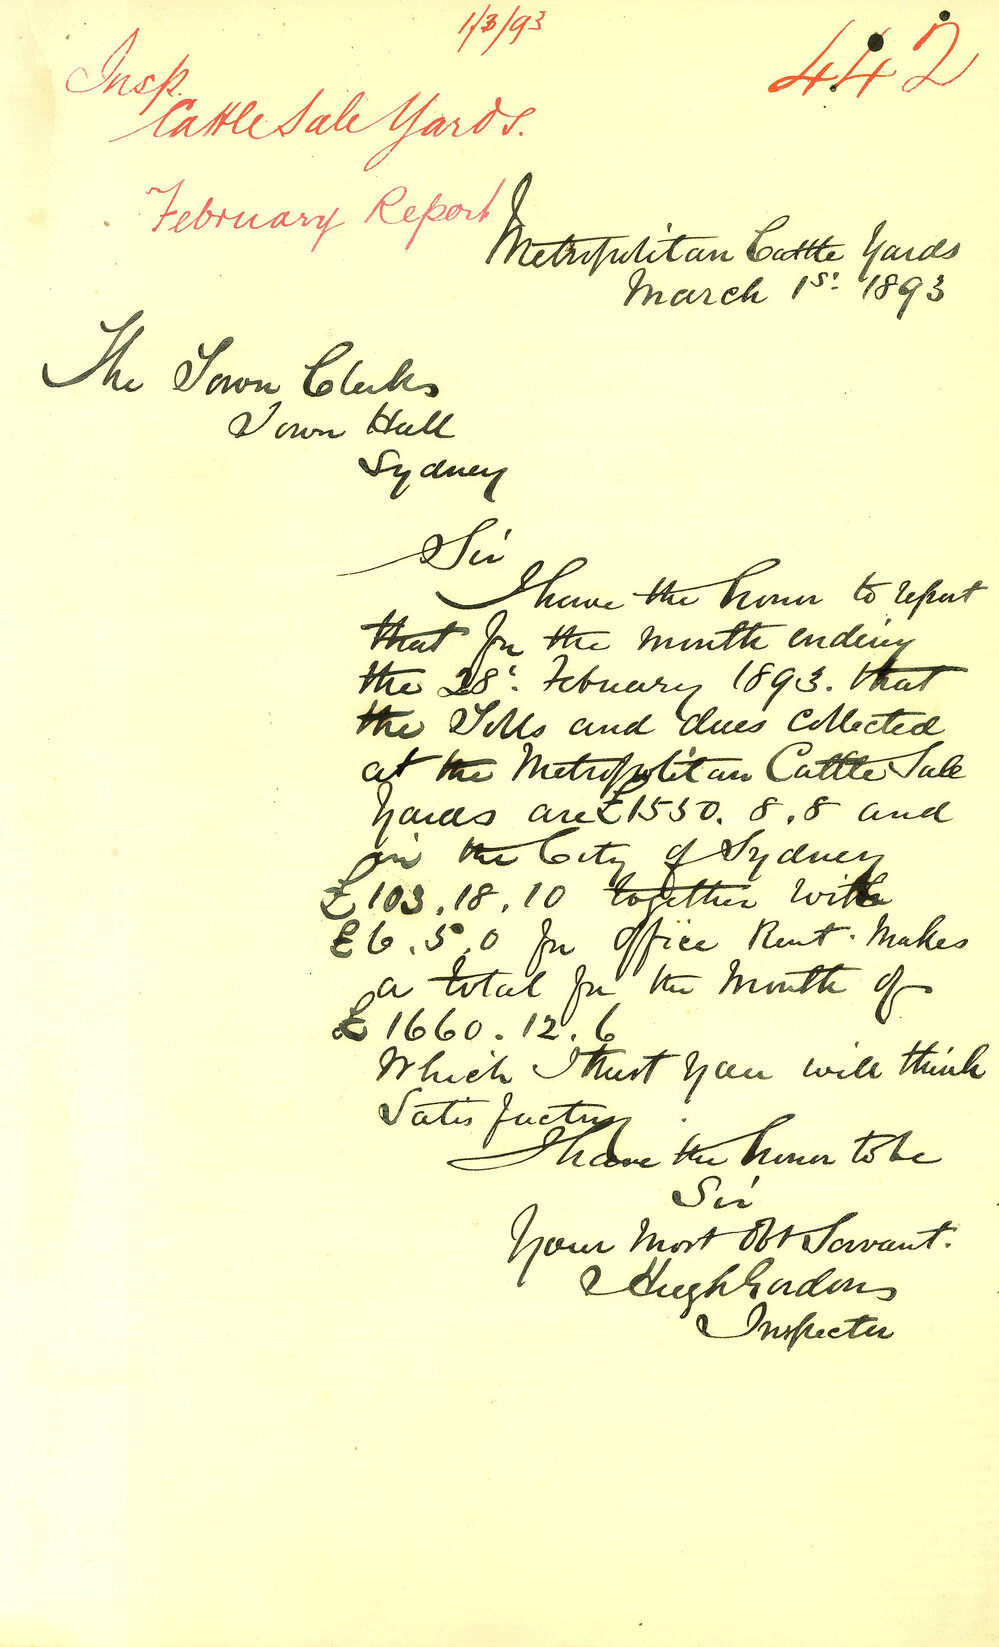 1/3/93
442
Insp.
Cattle Sale Yards.
February Report
Metropolitan Cattle Yards
March 1st. 1893
The Town Clerks
Town Hall
Sydney
Sir
I have the honor to report
that for the month ending
the 28t. February 1893. that
the Tolls and dues collected
at the Metropolitan Cattle Sale
Yards are £1550. 8. 8 and
in the City of Sydney
£103. 18. 10 together with
£6. 5. 0 for office Rent. Makes
a total for the Month of
£1660. 12. 6
Which I trust you will think
Satisfactory
I have the honor to be
Sir
Your Most Obt Servant.
Hugh Gordon
Inspector